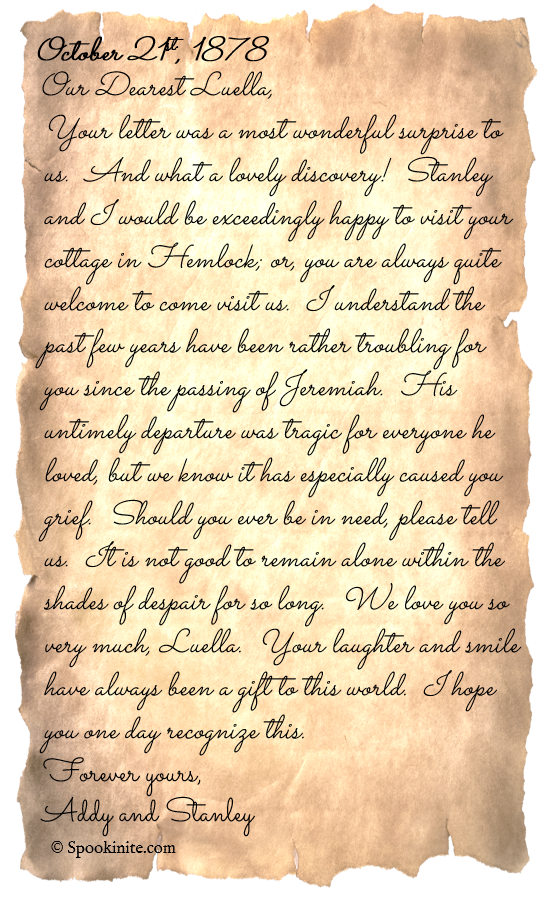 October 21st, 1878
Our Dearest Luella,
Your letter was a most wonderful surprise to
us. And what a lovely discovery! Stanley
and I would be exceedingly happy to visit your
cottage in Hemlock; or, you are always quite
welcome to come visit us. I understand the
past few years have been rather troubling for
you since the passing of Jeremiah. His
untimely departure was tragic for everyone he
loved, but we know it has especially caused you
grief. Should you ever be in need, please tell
us. It is not good to remain alone within the
shades of despair for so long. We love you so
very much, Luella. Your laughter and smile
have always been a gift to this world. I hope
you one day recognize this.
Forever yours,
Addy and Stanley
© Spookinite.com